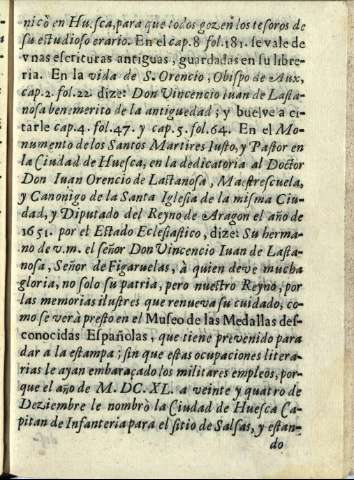 nicò en Huesca, para que todos gozen los tesoros de
su estudioso erario. En el cap. 8 fol. 181. se vale de
vnas escrituras antiguas, guardadas en su libre-
ria. En la vida de S. Orencio, Obispo de Aux,
cap. 2. fol. 22. dize: Don Vincencio Iuan de Lasta-
nosa benemerito de la antiguedad; y buelve a ci-
tarle cap. 4. fol. 47. y cap. 5. fol. 64. En el Mo-
numento de los Santos Martires Iusto, y Pastor en
la Ciudad de Huesca, en la dedicatoria al Doctor
Don Iuan Orencio de Lastanosa, Maestrescuela,
y Canonigo de la Santa Iglesia de la misma Ciu-
dad, y Diputado del Reyno de Aragon el año de
1651. por el Estado Eclesiastico, dize: Su herma-
no de v.m. el señor Don Vincencio Iuan de Lasta-
nosa, Señor de Figaruelas, à quien deve mucha
gloria, no solo su patria, pero nuestro Reyno, por
las memorias ilustres que renueva su cuidado, co-
mo se verà presto en el Museo de las Medallas des-
conocidas Españolas, que tiene prevenido para
dar a la estampa; sin que estas ocupaciones litera-
rias le ayan embaraçado los militares empleos, por-
que el año de M. DC. XL. a veinte y quatro de
Deziembre le nombrò la Ciudad de Huesca Ca-
pitan de Infanteria para el sitio de Salsas, y estan-
do